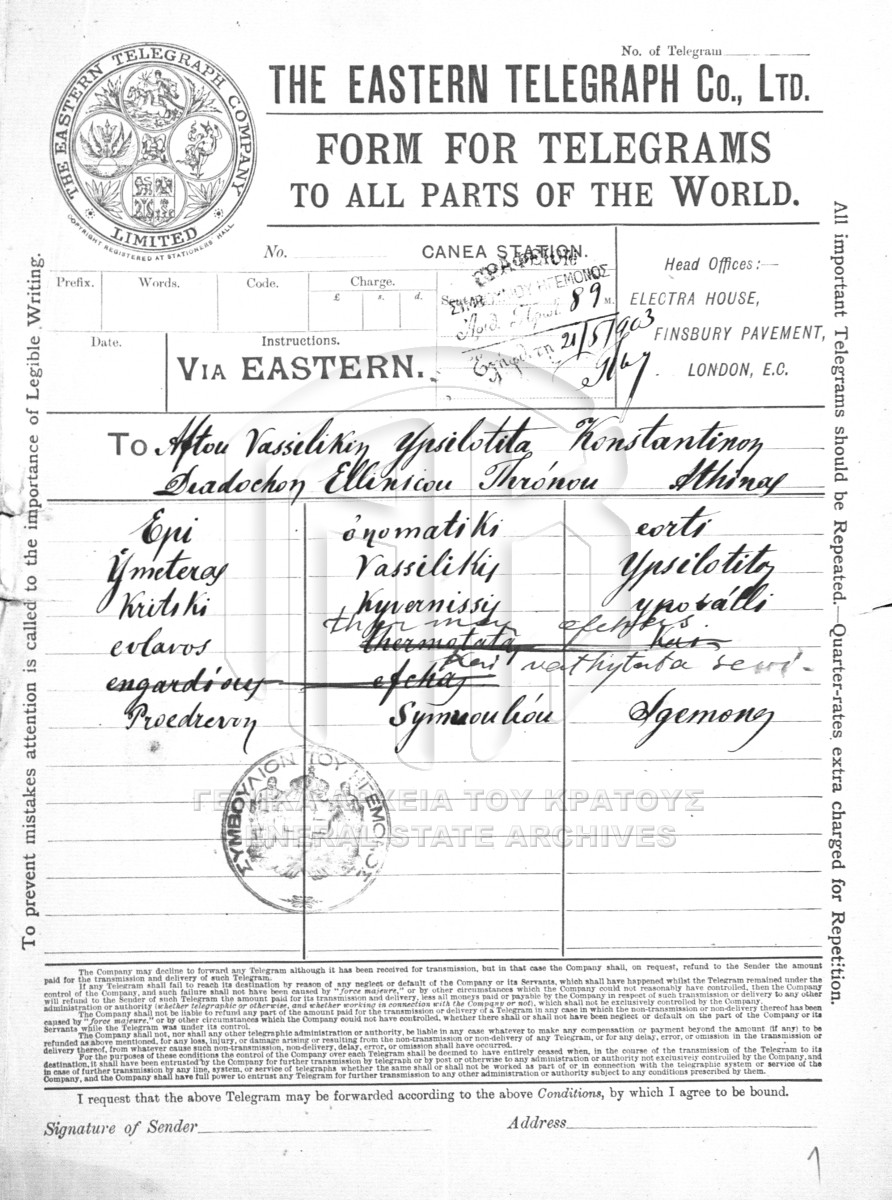 No. of Telegram
THE EASTERN TELEGRAPH Co., LTD.
FORM FOR TELEGRAMS
TO ALL PARTS OF THE WORLD.
THE EASTERN TELEGRAPH COMPANY
LIMITED
COPYRIGHT REGISTERED AT STATIONERS HALL
No. CANEA STATION.
Prefix. Words. Code. Charge.
£ s. d.
ΣΥΜΒΟΥΛΙΟΥ ΗΓΕΜΟΝΟΣ
89
21/5/903
Head Offices:—
ELECTRA HOUSE,
FINSBURY PAVEMENT,
LONDON, E.C.
Date. Instructions.
VIA EASTERN.
To Aftou Vassilikin Ypsilotita Konstantinon
Diadochon Ellinicou Thrónou Athinas
Epi onomatiki eorti
Ymeteras Vassilikis Ypsilotitos
Kritiki Kyvernissis ypovalli
thermas efchas
evlavos thermotatas kai
kai vathytata sevi-
engardíous efchas
Proedrevon Symvoulíou Igemonos
ΣΥΜΒΟΥΛΙΟΝ ΤΟΥ ΗΓΕΜΟΝΟΣ
ΓΕΝΙΚΑ ΑΡΧΕΙΑ ΤΟΥ ΚΡΑΤΟΥΣ
GENERAL STATE ARCHIVES
To prevent mistakes attention is called to the importance of Legible Writing.
All important Telegrams should be Repeated.—Quarter-rates extra charged for Repetition.
The Company may decline to forward any Telegram although it has been received for transmission, but in that case the Company shall, on request, refund to the Sender the amount
paid for the transmission and delivery of such Telegram.
If any Telegram shall fail to reach its destination by reason of any neglect or default of the Company or its Servants, which shall have happened whilst the Telegram remained under the
control of the Company, and such failure shall not have been caused by "force majeure," or by other circumstances which the Company could not reasonably have controlled, then the Company
will refund to the Sender of such Telegram the amount paid for its transmission and delivery, less all moneys paid or payable by the Company in respect of such transmission or delivery to any other
administration or authority (whether telegraphic or otherwise, and whether working in connection with the Company or not), which shall not be exclusively controlled by the Company.
The Company shall not be liable to refund any part of the amount paid for the transmission or delivery of a Telegram in any case in which the non-transmission or non-delivery thereof has been
caused by "force majeure," or by other circumstances which the Company could not have controlled, whether there shall or shall not have been neglect or default on the part of the Company or its
Servants while the Telegram was under its control.
The Company shall not, nor shall any other telegraphic administration or authority, be liable in any case whatever to make any compensation or payment beyond the amount (if any) to be
refunded as above mentioned, for any loss, injury, or damage arising or resulting from the non-transmission or non-delivery of any Telegram, or for any delay, error, or omission in the transmission or
delivery thereof, from whatever cause such non-transmission, non-delivery, delay, error, or omission shall have occurred.
For the purposes of these conditions the control of the Company over each Telegram shall be deemed to have entirely ceased when, in the course of the transmission of the Telegram to its
destination, it shall have been entrusted by the Company for further transmission or delivery by post or otherwise to any administration or authority not exclusively controlled by the Company, and
in case of further transmission by any line, system, or service of telegraphs whether the same shall or shall not be worked as part of or in connection with the telegraphic system or service of the
Company, and the Company shall have full power to entrust any Telegram for further transmission to any other administration or authority subject to any conditions prescribed by them.
I request that the above Telegram may be forwarded according to the above Conditions, by which I agree to be bound.
Signature of Sender Address
1